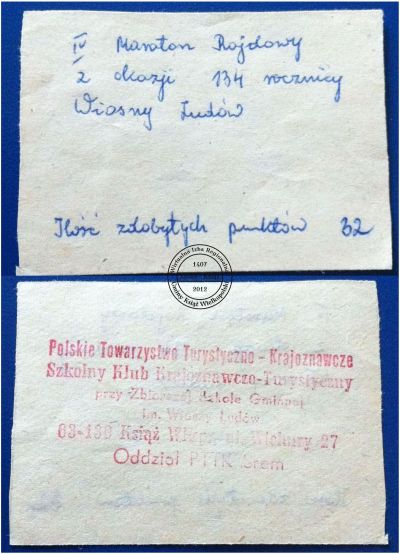 IV Maraton Rajdowy
z okazji 134 rocznicy
Wiosny Ludów
Ilość zdobytych punktów 32
Wirtualna Izba Regionalna
1407
2012
Gminy Książ Wielkopolski
Polskie Towarzystwo Turystyczno - Krajoznawcze
Szkolny Klub Krajoznawczo-Turystyczny
przy Zbiorczej Szkole Gminnej
im. Wiosny Ludów
63-130 Książ Wlkp. ul. Wichury 27
Oddział PTTK Śrem